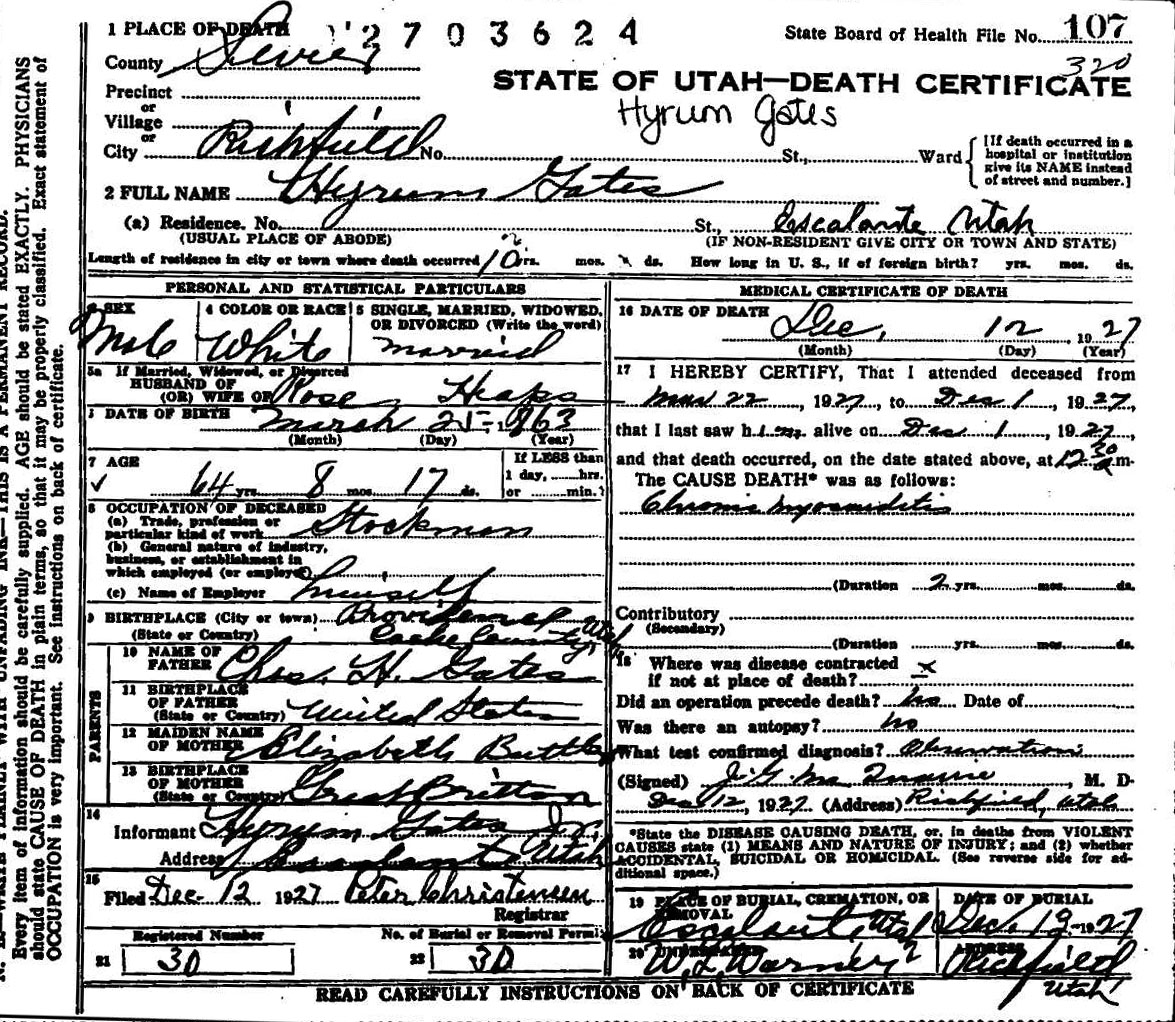 1 PLACE OF DEATH
2703624
State Board of Health File No. 107
320
County Sevier
STATE OF UTAH—DEATH CERTIFICATE
Precinct
or
Hyrum Gates
Village
or
City Richfield No. St., Ward
[If death occurred in a
hospital or institution
give its NAME instead
of street and number.]
2 FULL NAME Hyrum Gates
(a) Residence. No. St., Escalante Utah
(USUAL PLACE OF ABODE) (IF NON-RESIDENT GIVE CITY OR TOWN AND STATE)
Length of residence in city or town where death occurred 10 yrs. mos. ds. How long in U. S., if of foreign birth? yrs. mos. ds.
PERSONAL AND STATISTICAL PARTICULARS
3 SEX
Male
4 COLOR OR RACE
White
5 SINGLE, MARRIED, WIDOWED,
OR DIVORCED (Write the word)
married
5a If Married, Widowed, or Divorced
HUSBAND OF
(OR) WIFE OF Rose Heaps
DATE OF BIRTH March 25 - 1863
(Month) (Day) (Year)
7 AGE
64 yrs 8 mos 17 ds.
If LESS than
1 day, hrs.
or min.?
8 OCCUPATION OF DECEASED
(a) Trade, profession or
particular kind of work Stockman
(b) General nature of industry,
business, or establishment in
which employed (or employer)
(c) Name of Employer himself
9 BIRTHPLACE (City or town) Providence
(State or Country) Cache County, Utah
PARENTS
10 NAME OF
FATHER Chas. H. Gates
11 BIRTHPLACE
OF FATHER
(State or Country) United States
12 MAIDEN NAME
OF MOTHER Elizabeth Buttler
13 BIRTHPLACE
OF MOTHER
(State or Country) Great Britton
14
Informant Hyrum Gates Jr.
Address Escalante Utah
15
Filed Dec. 12 1927 Peter Christensen
Registrar
Registered Number
21 30
No. of Burial or Removal Permit
22 30
MEDICAL CERTIFICATE OF DEATH
16 DATE OF DEATH
Dec, 12, 1927
(Month) (Day) (Year)
17 I HEREBY CERTIFY, That I attended deceased from
22, 1927, to Dec 1, 1927,
that I last saw him alive on Dec 1, 1927,
and that death occurred, on the date stated above, at 12 30 a m.
The CAUSE DEATH* was as follows:
Chronic myocarditis
(Duration 2 yrs. mos. ds.
Contributory
(Secondary)
(Duration yrs. mos. ds.
18 Where was disease contracted
if not at place of death? x
Did an operation precede death? no Date of
Was there an autopsy? no
What test confirmed diagnosis? Observation
(Signed) J. G. , M. D
Dec 12, 1927 (Address) Richfield, Utah
*State the DISEASE CAUSING DEATH, or, in deaths from VIOLENT
CAUSES state (1) MEANS AND NATURE OF INJURY; and (2) whether
ACCIDENTAL, SUICIDAL OR HOMICIDAL. (See reverse side for ad-
ditional space.)
19 PLACE OF BURIAL, CREMATION, OR
REMOVAL
Escalante, Utah
DATE OF BURIAL
Dec. 1927
20 UNDERTAKER
W. L. Warner
ADDRESS
Richfield
Utah
READ CAREFULLY INSTRUCTIONS ON BACK OF CERTIFICATE
N. B.—WRITE PLAINLY WITH UNFADING INK—THIS IS A PERMANENT RECORD.
Every item of information should be carefully supplied. AGE should be stated EXACTLY. PHYSICIANS
should state CAUSE OF DEATH in plain terms, so that it may be properly classified. Exact statement of
OCCUPATION is very important. See instructions on back of certificate.